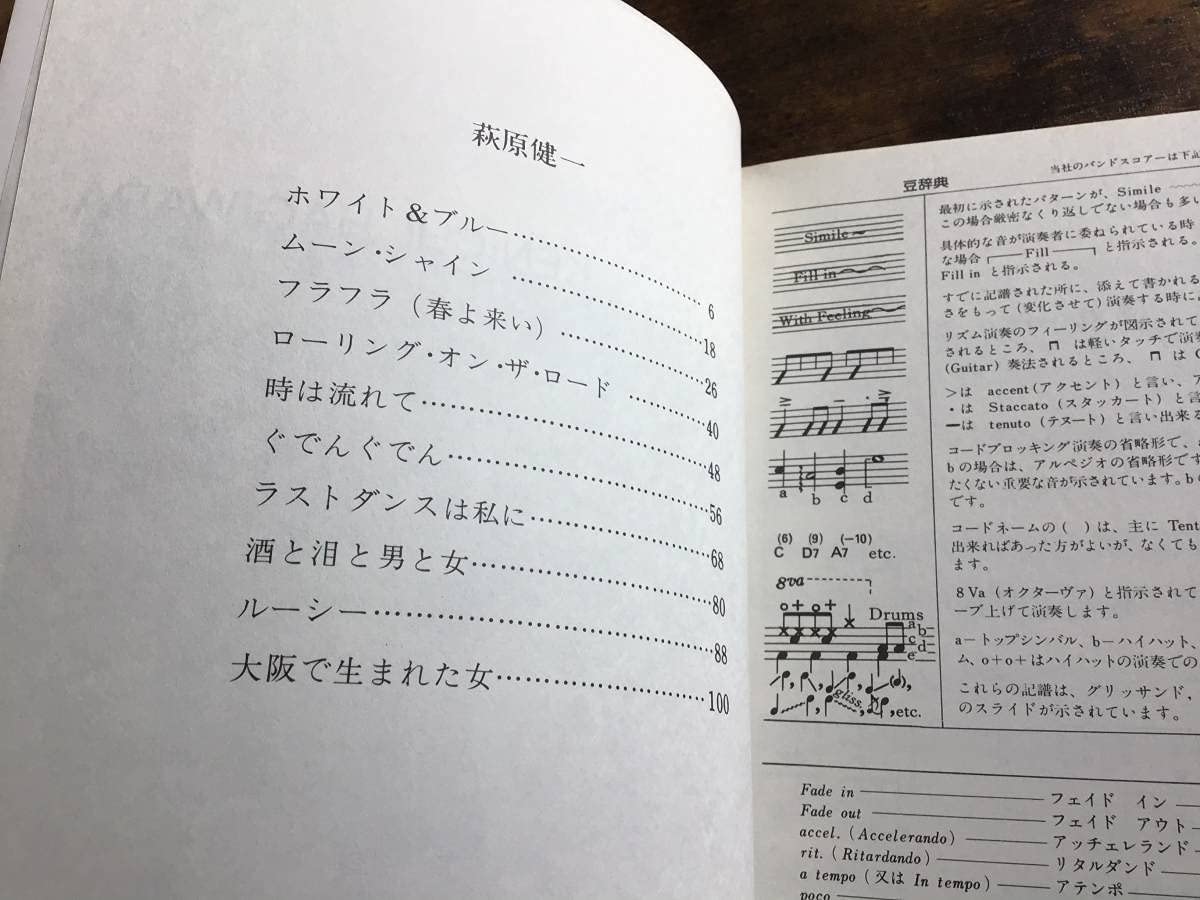 萩原健一
ホワイト&ブルー……………………6
ムーン・シャイン……………………18
フラフラ(春よ来い)………………26
ローリング・オン・ザ・ロード………40
時は流れて……………………………48
ぐでんぐでん…………………………56
ラストダンスは私に…………………68
酒と泪と男と女………………………80
ルーシー………………………………88
大阪で生まれた女……………………100
当社のバンドスコアーは下記
豆辞典
Simile
最初に示されたパターンが、Simile
この場合厳密なくり返しでない場合も多い
Fill in
具体的な音が演奏者に委ねられている時
な場合 Fill と指示される。
Fill in と指示される。
With Feeling
すでに記譜された所に、添えて書かれる
さをもって(変化させて)演奏する時に
リズム演奏のフィーリングが図示されて
されるところ、⊓ は軽いタッチで演奏
(Guitar) 奏法されるところ、⊓ は
>は accent(アクセント)と言い、ア
・は Staccato(スタッカート)と言
ーは tenuto(テヌート)と言い出来る
a b c d
コードブロッキング演奏の省略形で、a
bの場合は、アルペジオの省略形です
たくない重要な音が示されています。bの
です。
(6) (9) (−10)
C D7 A7 etc.
コードネームの( )は、主に Tent
出来ればあった方がよいが、なくても
ます。
8va
8Va(オクターヴァ)と指示されて
ーブ上げて演奏します。
o+o+ Drums
a b c d e
a−トップシンバル、b−ハイハット、
ム、o+o+はハイハットの演奏での
gliss.
etc.
これらの記譜は、グリッサンド、
のスライドが示されています。
Fade in フェイド イン
Fade out フェイド アウト
accel.(Accelerando) アッチェレランド
rit.(Ritardando) リタルダンド
a tempo(又は In tempo) アテンポ
poco